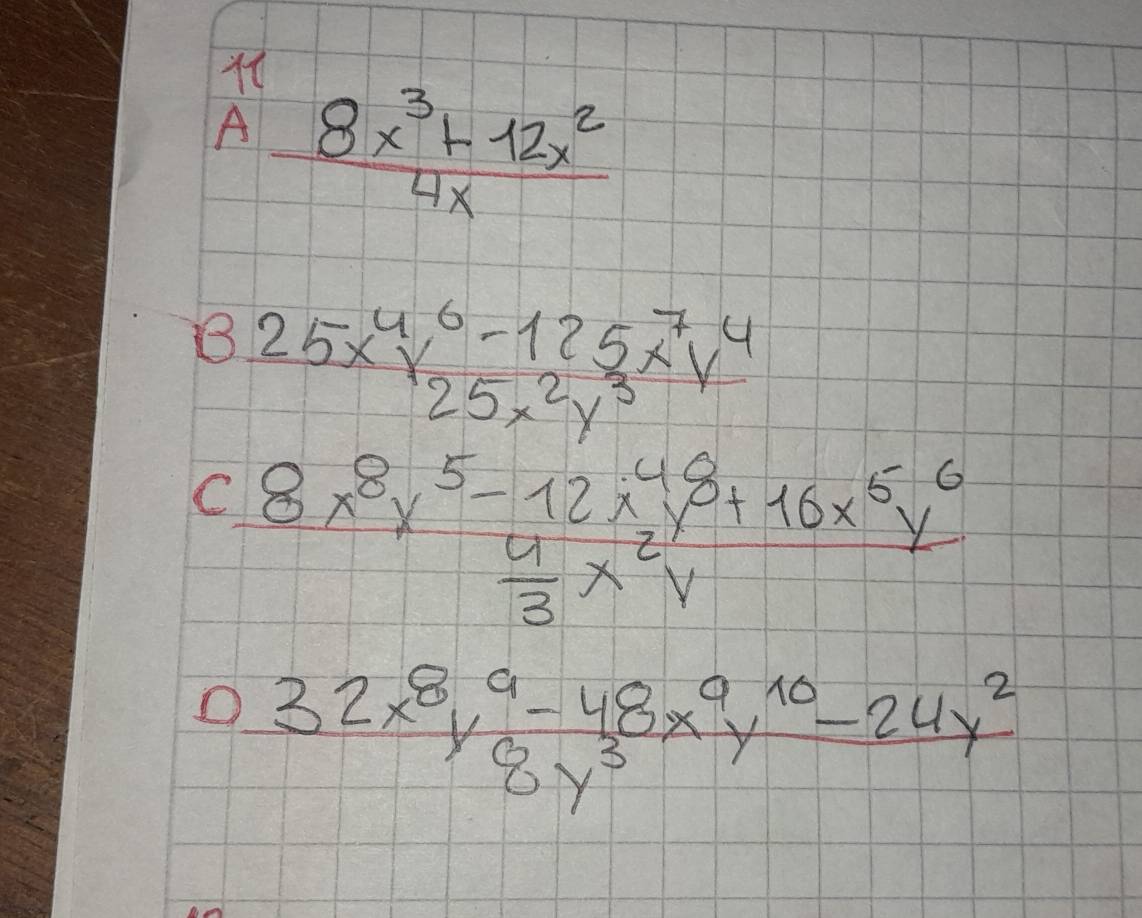 11
A 8x³ + 12x²
4x
B 25x⁴y⁶ - 125x⁷y⁴
25x²y³
C 8x⁸y⁵ - 12x⁴y⁸ + 16x⁵y⁶
4/3 x²y
D 32x⁸y⁹ - 48x⁹y¹⁰ - 24y²
8y³